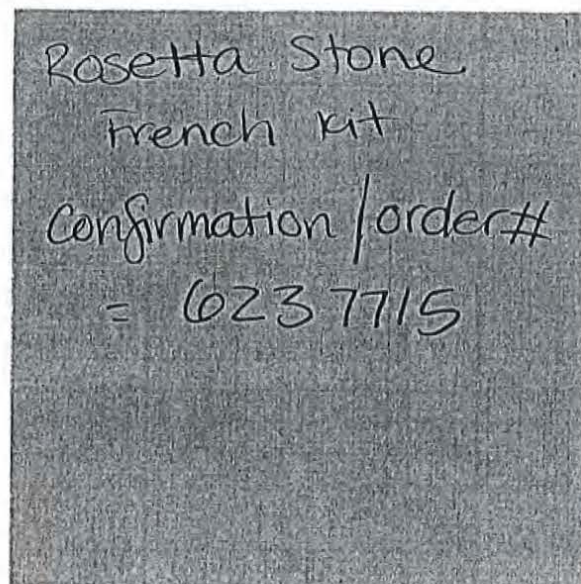 Rosetta Stone
French Kit
Confirmation/order#
= 6237715